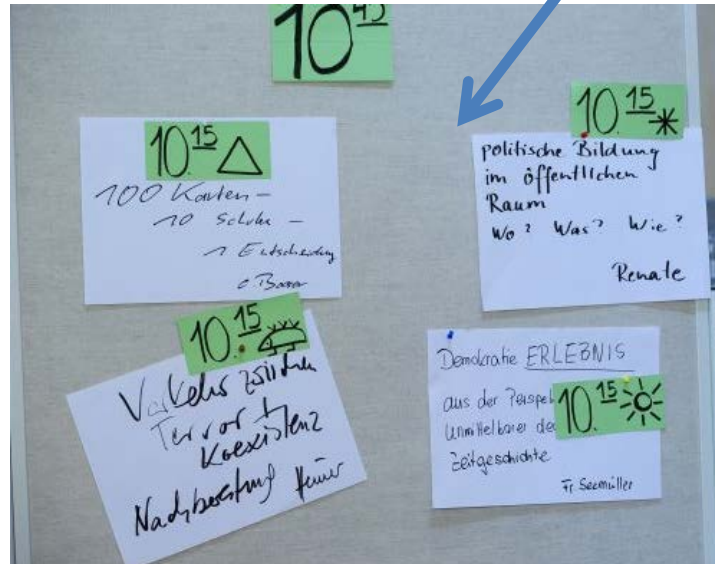 10 45
10.15
100 Karten –
10 Schuhe –
1 Entscheidung
10.15
politische Bildung
im öffentlichen
Raum
Wo? Was? Wie?
Renate
10.15
Verkehr zwischen
Terror +
Koexistenz
Nachbereitung
Demokratie ERLEBNIS
aus der
10.15
Unmittelbarer
Zeitgeschichte
Fr. Seemüller